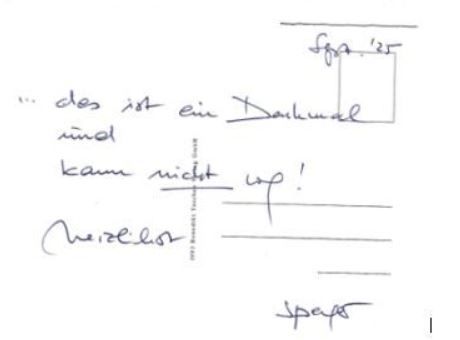 Sept. '25
... das ist ein Denkmal
und
kann nicht weg!
Herzlichst
1993 Benedikt Taschen Verlag GmbH